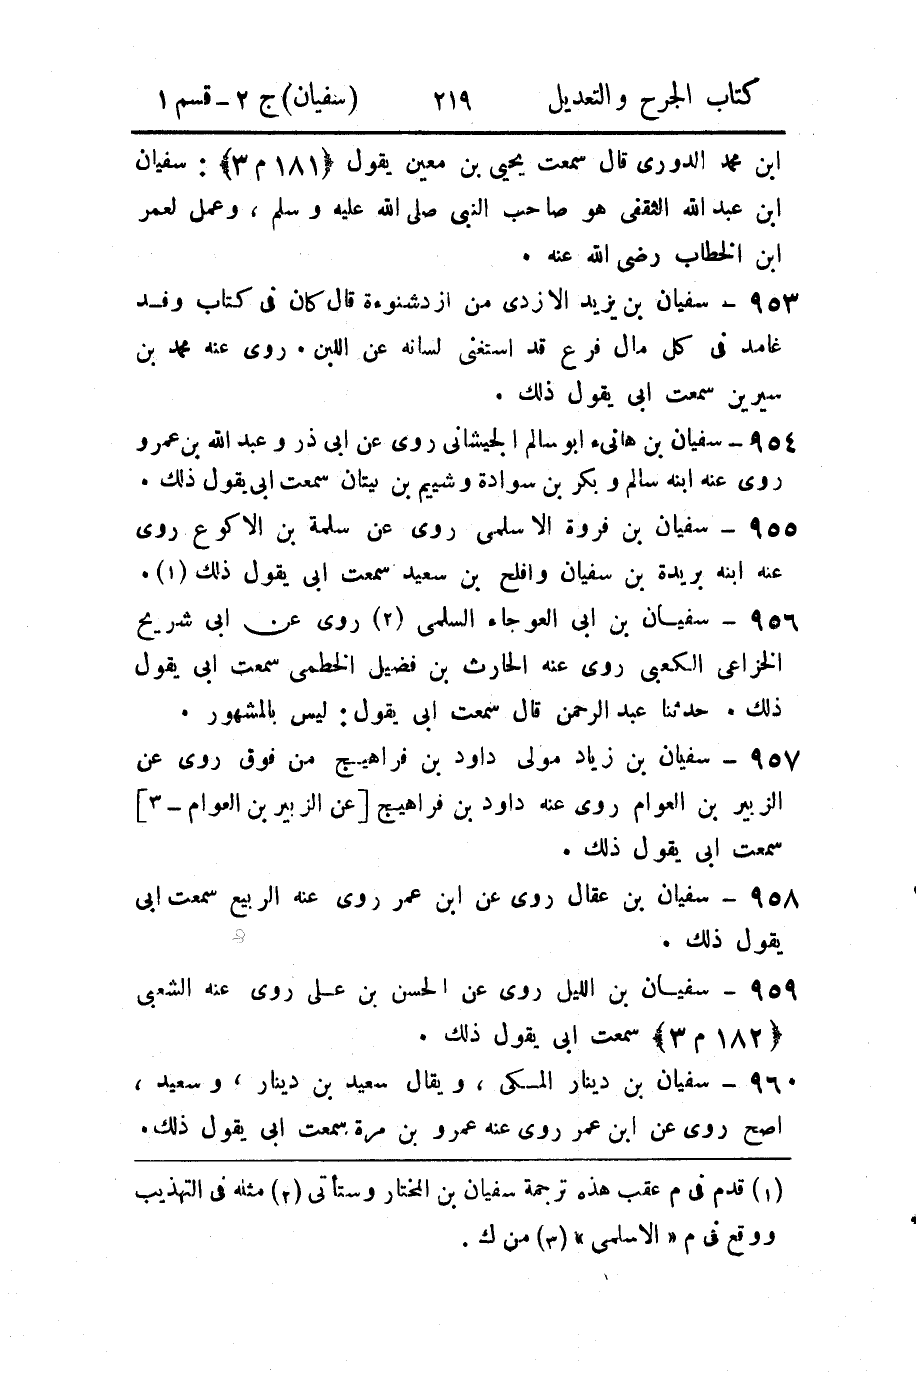 كتاب الجرح والتعديل ٢١٩ (سفيان) ج ٢ - قسم ١
ابن محمد الدورى قال سمعت يحيى بن معين يقول ﴿١٨١ م ٣﴾ : سفيان
ابن عبد الله الثقفى هو صاحب النبى صلى الله عليه و سلم ، وعمل لعمر
ابن الخطاب رضى الله عنه .
٩٥٣ - سفيان بن يزيد الازدى من ازدشنوءة قال كان فى كتاب وفد
غامد فى كل مال فرع قد استغنى لسانه عن اللبن . روى عنه محمد بن
سيرين سمعت ابى يقول ذلك .
٩٥٤ - سفيان بن هانىء ابو سالم الجيشانى روى عن ابى ذر و عبد الله بن عمرو
روى عنه ابنه سالم و بكر بن سوادة و شييم بن بيتان سمعت ابى يقول ذلك .
٩٥٥ - سفيان بن فروة الاسلمى روى عن سلمة بن الاكوع روى
عنه ابنه بريدة بن سفيان وافلح بن سعيد سمعت ابى يقول ذلك (١) .
٩٥٦ - سفيان بن ابى العوجاء السلمى (٢) روى عن ابى شريح
الخزاعى الكعبى روى عنه الحارث بن فضيل الخطمى سمعت ابى يقول
ذلك . حدثنا عبد الرحمن قال سمعت ابى يقول : ليس بالمشهور .
٩٥٧ - سفيان بن زياد مولى داود بن فراهيج من فوق روى عن
الزبير بن العوام روى عنه داود بن فراهيج [عن الزبير بن العوام - ٣]
سمعت ابى يقول ذلك .
٩٥٨ - سفيان بن عقال روى عن ابن عمر روى عنه الربيع سمعت ابى
يقول ذلك .
٩٥٩ - سفيان بن الليل روى عن الحسن بن على روى عنه الشعبى
﴿١٨٢ م ٣﴾ سمعت ابى يقول ذلك .
٩٦٠ - سفيان بن دينار المكى ، و يقال سعيد بن دينار ، و سعيد ،
اصح روى عن ابن عمر روى عنه عمرو بن مرة سمعت ابى يقول ذلك .
(١) قدم فى م عقب هذه ترجمة سفيان بن المختار وستأتى (٢) مثله فى التهذيب
ووقع فى م « الاسلمى » (٣) من ك .